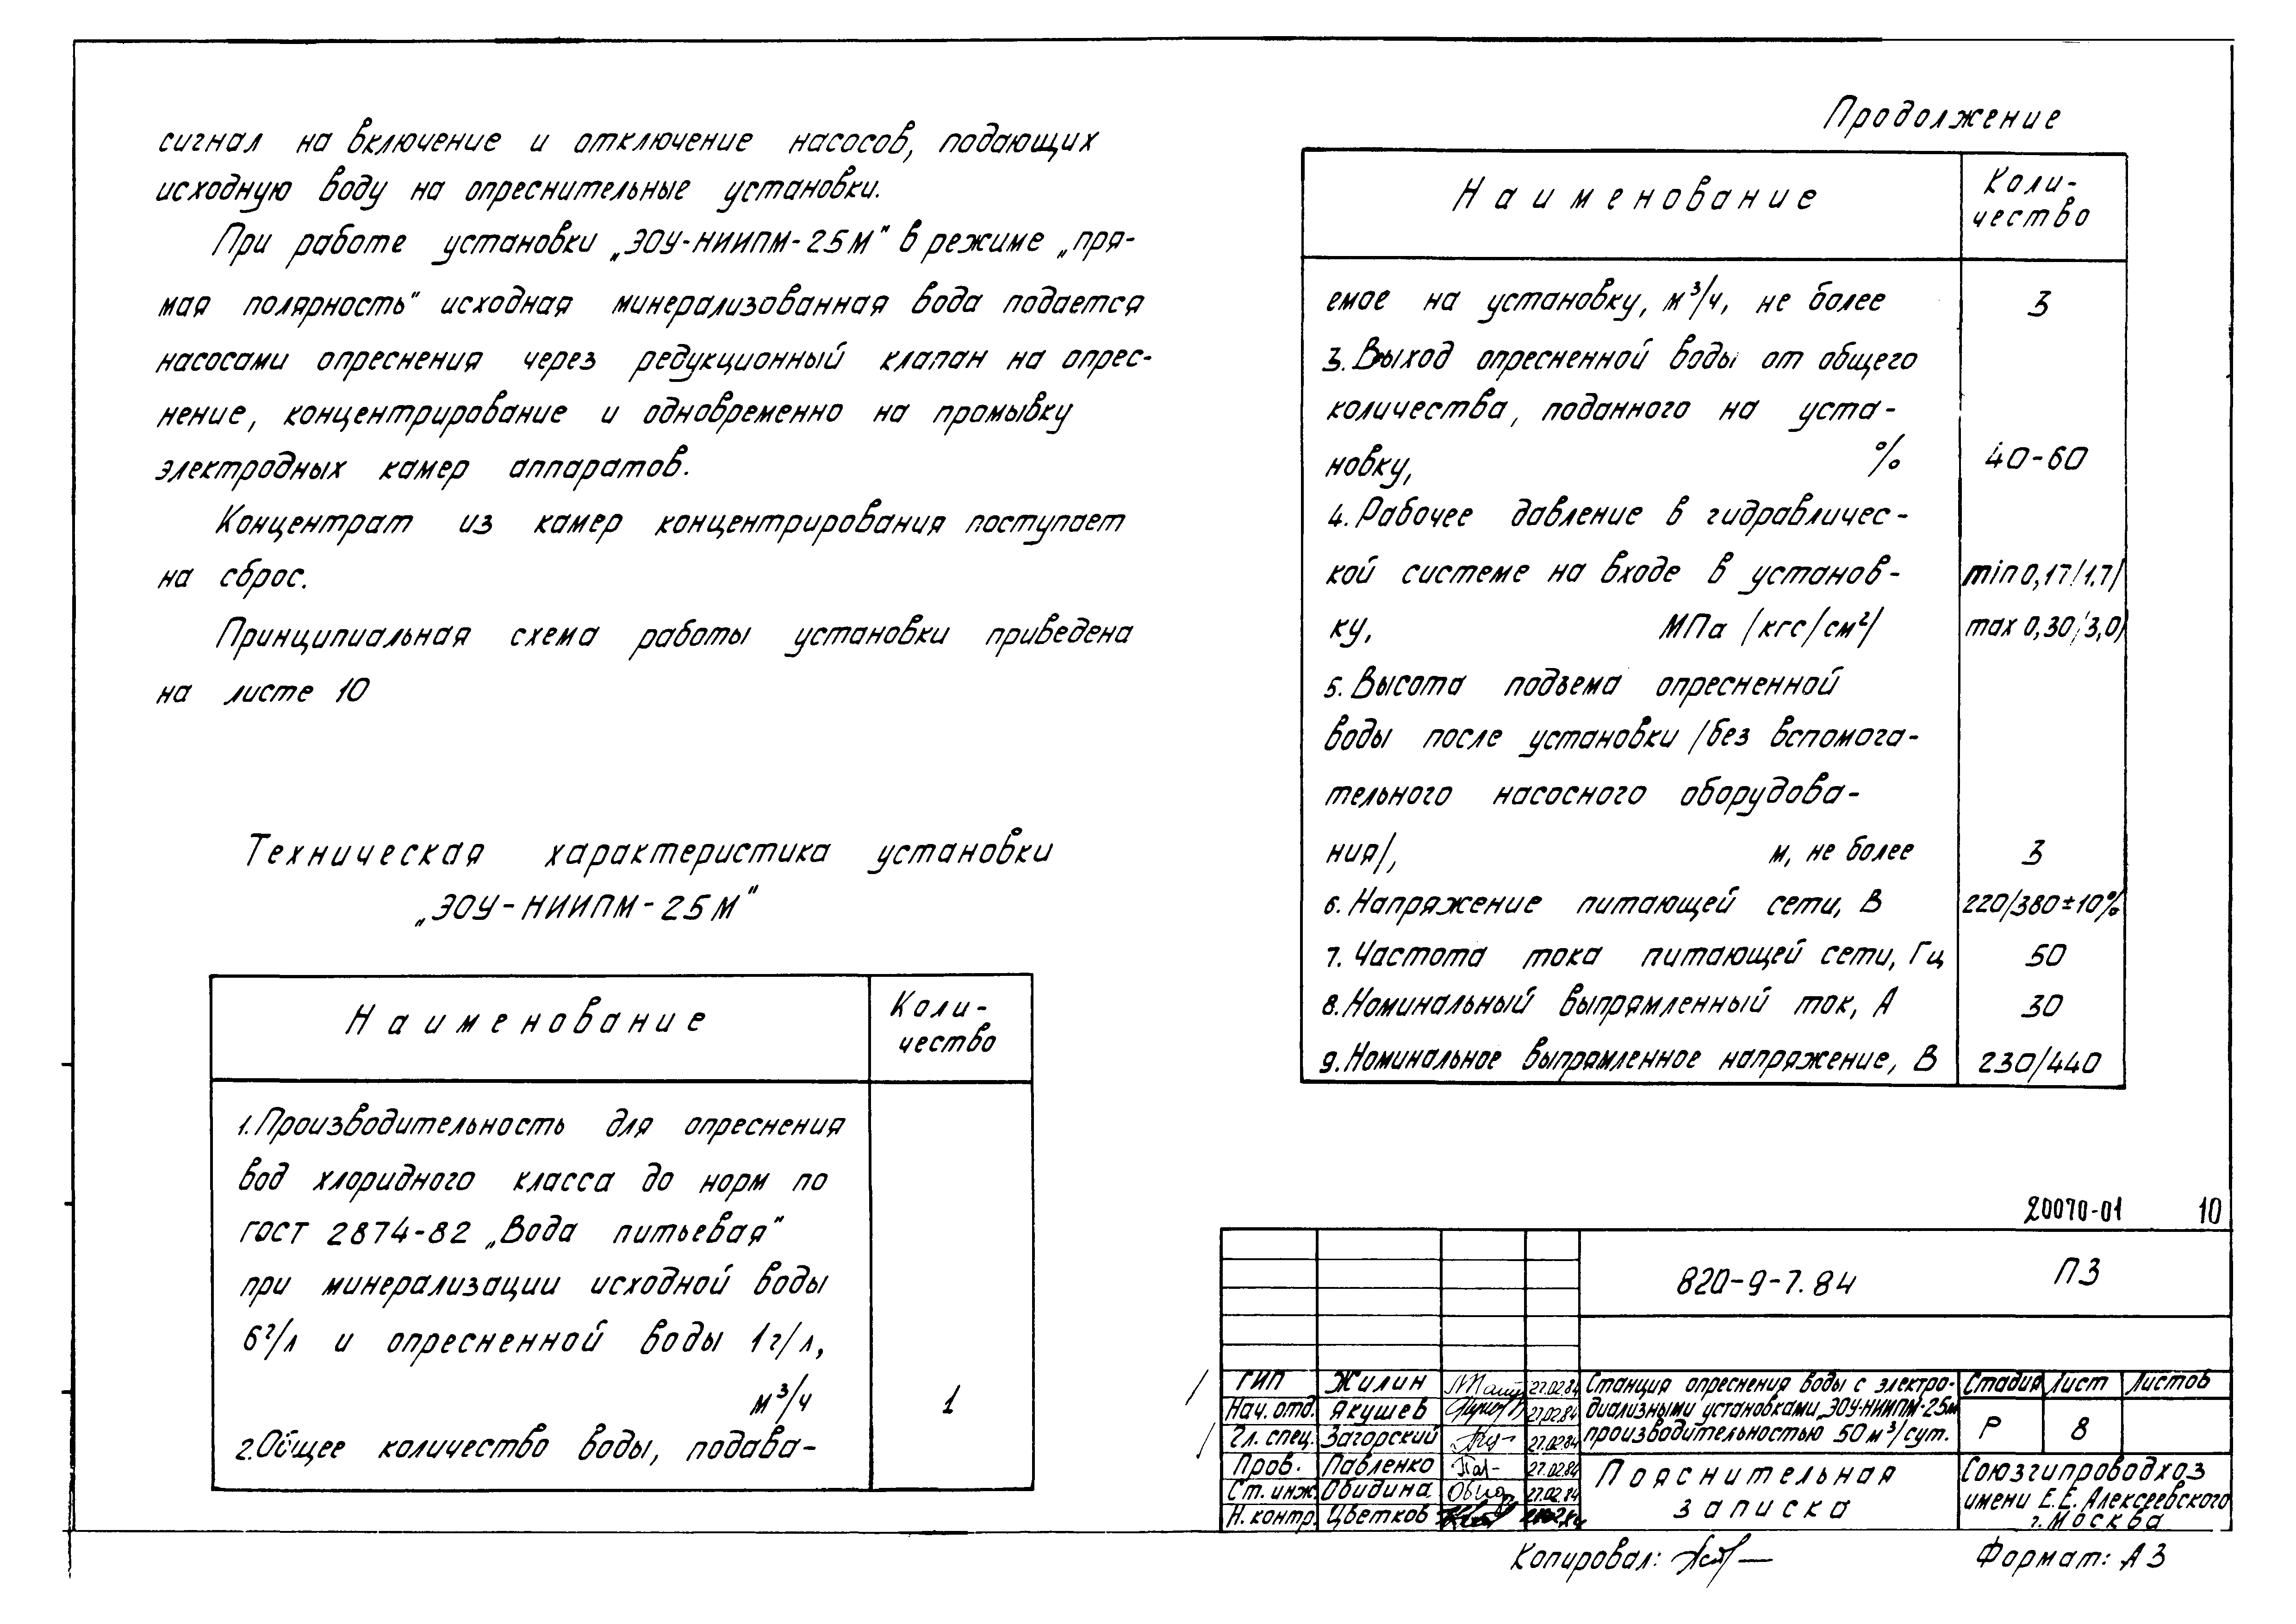 сигнал на включение и отключение насосов, подающих
исходную воду на опреснительные установки.
При работе установки „ЭОУ-НИИПМ-25М" в режиме „пря-
мая полярность" исходная минерализованная вода подается
насосами опреснения через редукционный клапан на опрес-
нение, концентрирование и одновременно на промывку
электродных камер аппаратов.
Концентрат из камер концентрирования поступает
на сброс.
Принципиальная схема работы установки приведена
на листе 10
Техническая характеристика установки
„ЭОУ-НИИПМ-25М"
Наименование
Коли-
чество
1. Производительность для опреснения
вод хлоридного класса до норм по
гост 2874-82 „Вода питьевая"
при минерализации исходной воды
6г/л и опресненной воды 1г/л,
м³/ч 1
2. Общее количество воды, подава-
Продолжение
Наименование
Коли-
чество
емое на установку, м³/ч, не более 3
3. Выход опресненной воды от общего
количества, поданного на уста-
новку, % 40-60
4. Рабочее давление в гидравличес-
кой системе на входе в установ- min 0,17/1.7/
ку, МПа /кгс/см²/ max 0,30/3,0/
5. Высота подъема опресненной
воды после установки /без вспомога-
тельного насосного оборудова-
ния/, м, не более 3
6. Напряжение питающей сети, В 220/380±10%
7. Частота тока питающей сети, Гц 50
8. Номинальный выпрямленный ток, А 30
9. Номинальное выпрямленное напряжение, В 230/440
20070-01 10
820-9-7.84 ПЗ
ГИП Жилин 27.02.84
Нач. отд. Якушев 27.02.84
Гл. спец. Загорский 27.02.84
Пров. Павленко 27.02.84
Ст. инж. Обидина 27.02.84
Н. контр. Цветков
Станция опреснения воды с электро-
диализными установками „ЭОУ-НИИПМ-25М
производительностью 50 м³/сут.
Стадия Лист Листов
Р 8
Пояснительная
записка
Союзгипроводхоз
имени Е.Е. Алексеевского
г. Москва
Копировал: Формат: А3